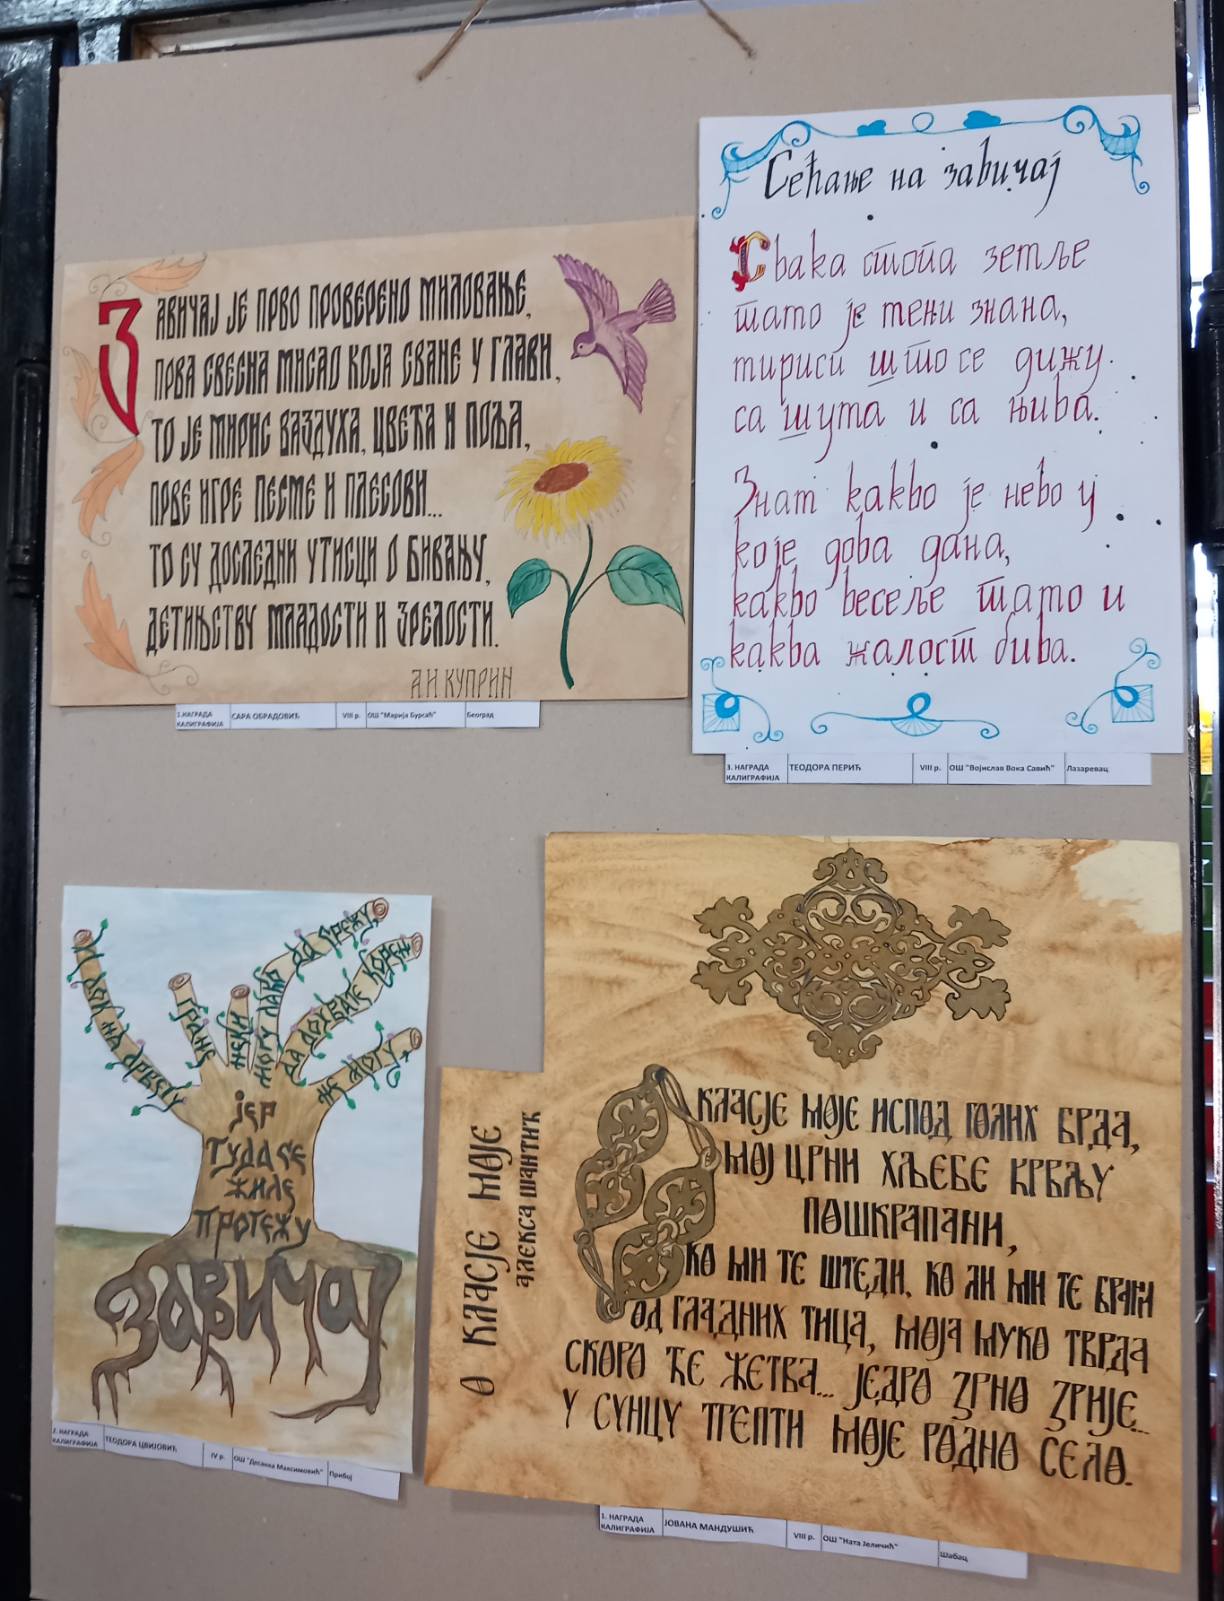 ЗАВИЧАЈ ЈЕ ПРВО ПРОВЕРЕНО МИЛОВАЊЕ,
ПРВА СВЕСНА МИСАО КОЈА СВАНЕ У ГЛАВИ,
ТО ЈЕ МИРИС ВАЗДУХА, ЦВЕЋА И ПОЉА,
ПРВЕ ИГРЕ ПЕСМЕ И ПЛЕСОВИ...
ТО СУ ДОСЛЕДНИ УТИСЦИ О БИВАЊУ,
ДЕТИЊСТВУ МЛАДОСТИ И ЗРЕЛОСТИ.
А.И КУПРИН
1.НАГРАДА КАЛИГРАФИЈА САРА ОБРАДОВИЋ VIII р. ОШ "Марија Бурсаћ" Београд
Сећање на завичај
Свака стопа земље
тамо је мени знана,
мириси што се дижу
са шума и са њива.
Знам какво је небо у
које доба дана,
какво весеље тамо и
каква жалост бива.
3. НАГРАДА КАЛИГРАФИЈА ТЕОДОРА ПЕРИЋ VIII р. ОШ "Војислав Вока Савић" Лазаревац
И ДОК НА ДРВЕТУ
ГРАНЕ
НЕКИ
МОГУ ЛАКО ДА ОРЕЖУ,
ДА ДОХВАТЕ КОРЕН
НЕ МОГУ,
ЈЕР
ТУДА СЕ
ЖИЛЕ
ПРОТЕЖУ
ЗАВИЧАЈ
2. НАГРАДА КАЛИГРАФИЈА ТЕОДОРА ЦВИЈОВИЋ IV р. ОШ "Десанка Максимовић" Прибој
О КЛАСЈЕ МОЈЕ
АЛЕКСА ШАНТИЋ
О КЛАСЈЕ МОЈЕ ИСПОД ГОЛИХ БРДА,
МОЈ ЦРНИ ХЉЕБЕ КРВЉУ
ПОШКРАПАНИ,
КО МИ ТЕ ШТЕДИ, КО ЛИ МИ ТЕ БРАНИ
ОД ГЛАДНИХ ТИЦА, МОЈА МУКО ТВРДА
СКОРО ЋЕ ЖЕТВА... ЈЕДРО ЗРНО ЗРИЈЕ...
У СУНЦУ ТРЕПТИ МОЈЕ РОДНО СЕЛО.
1. НАГРАДА КАЛИГРАФИЈА ЈОВАНА МАНДУШИЋ VIII р. ОШ "Ната Јеличић" Шабац